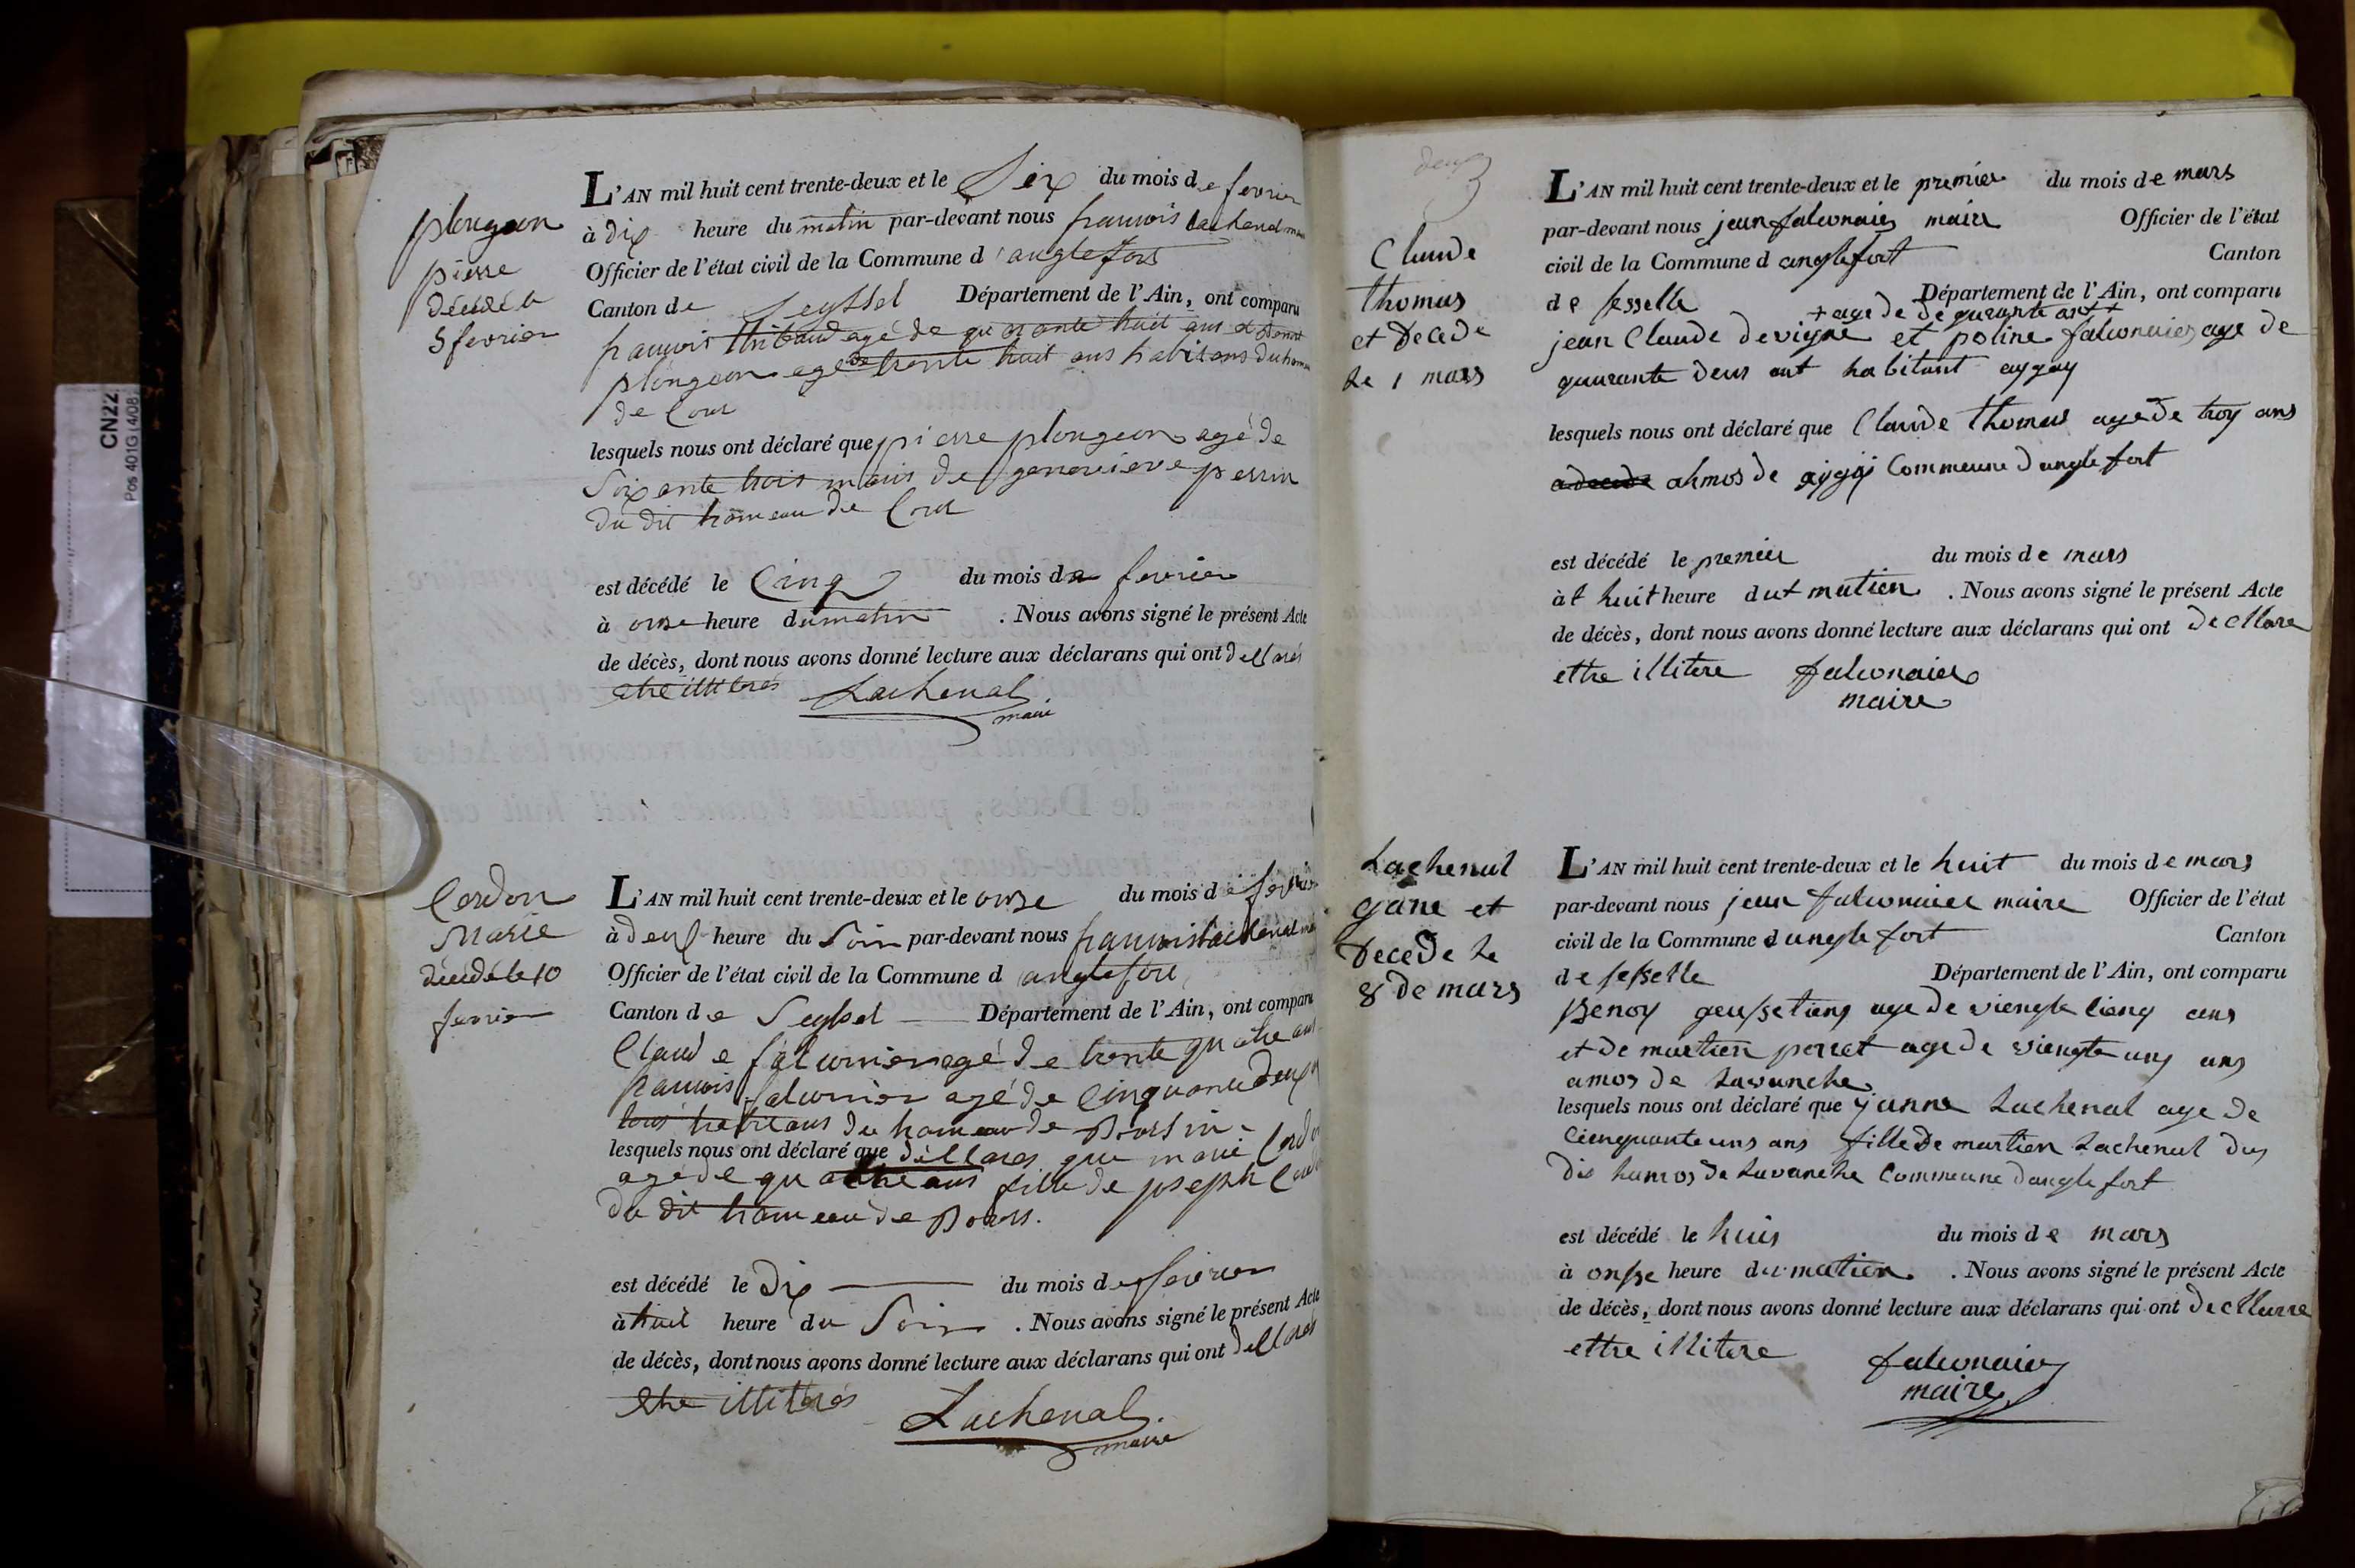 plongeon
pierre
décédé le
5 fevrier
L'AN mil huit cent trente-deux et le Six du mois de fevrier
à dix heure du matin par-devant nous francois Lachenal
Officier de l'état civil de la Commune d'anglefort
Canton de Seyssel Département de l'Ain, ont comparu
francois thibaud agé de quarante huit ans et
plongeon agé de trente huit ans habitans du
de
lesquels nous ont déclaré que pierre plongeon agé de
Soixante trois maris de genevieve perrin
du dit hameau de
est décédé le Cinq du mois de fevrier
à onse heure du matin . Nous avons signé le présent Acte
de décès, dont nous avons donné lecture aux déclarans qui ont dellarés
etre illitérés Lachenal
maire
Cordon
Marie
décédé le 10
fevrier
L'AN mil huit cent trente-deux et le onse du mois de fevrier
à deux heure du Soir par-devant nous francois Lachenal
Officier de l'état civil de la Commune d anglefort
Canton de Seyssel Département de l'Ain, ont comparu
Claude falconier agé de trente quatre ans
francois falconier agé de Cinquante deux
tous habitans du hameau de
lesquels nous ont déclaré que dellarés que marie Cordon
agé de quatre ans fille de joseph
du dit hameau de
est décédé le dix du mois de fevrier
à huit heure du Soir . Nous avons signé le présent Acte
de décès, dont nous avons donné lecture aux déclarans qui ont dellarés
etre illitérés
Lachenal
maire
Claude
thomas
et decede
Le 1 mars
L'AN mil huit cent trente-deux et le premier du mois de mars
par-devant nous jean falconaier maire Officier de l'état
civil de la Commune d anglefort Canton
de sesselle Département de l'Ain, ont comparu
+ age de de quarante ant +
jean Claude devigne et poline falconaier age de
quarante deus ant habitant aygay
lesquels nous ont déclaré que Claude thomas age de troy ans
ahmos de Commeune d anglefort
est décédé le premier du mois de mars
à t huit heure dut matien . Nous avons signé le présent Acte
de décès, dont nous avons donné lecture aux déclarans qui ont decllare
ettre illitere falconaier
maire
Lachenal
gane et
decede le
8 de mars
L'AN mil huit cent trente-deux et le huit du mois de mars
par-devant nous jean falconaier maire Officier de l'état
civil de la Commune d anglefort Canton
de sesselle Département de l'Ain, ont comparu
Benoy age de viengte cienq ans
et de martien perret age de viengte ung ans
amos de Lavanche
lesquels nous ont déclaré que janne Lachenal age de
Cienquante uns ans fille de martien Lachenal du
dis hamos de Lavanche Commeune d anglefort
est décédé le huis du mois de mars
à onsse heure du matien . Nous avons signé le présent Acte
de décès, dont nous avons donné lecture aux déclarans qui ont decllarre
ettre illitere falconaier
maire
CN22
Pos 401G (4/08)